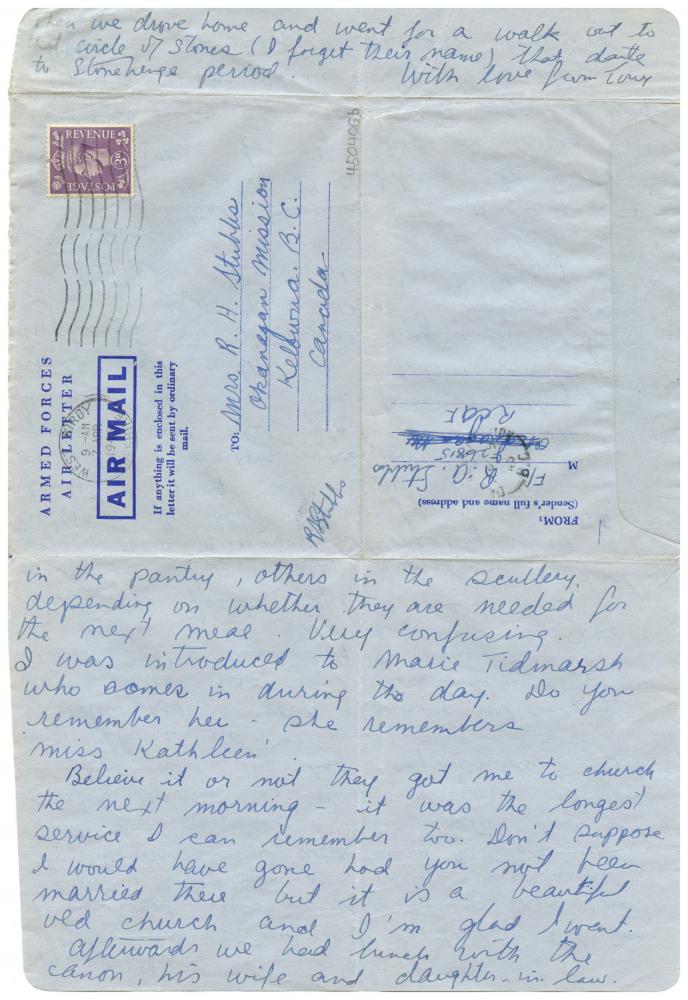 then we drove home and went for a walk out to
that circle of stones (I forget their name) that date
to Stonehenge period. With love from Tony
REVENUE
3D
POSTAGE
45040069
ARMED FORCES
AIR LETTER
AIR MAIL
WEST KIRBY
9 - AM
APR
19
If anything is enclosed in this
letter it will be sent by ordinary
mail.
TO: Mrs. R. H. Stubbs
Okanagan Mission
Kelowna. B. C.
Canada
RAStubbs
FROM:
(Sender's full name and address)
F/O R. A. Stubbs
M 26815
RCAF
B.C.
in the pantry, others in the scullery,
depending on whether they are needed for
the next meal. Very confusing.
I was introduced to Marie Tidmarsh
who comes in during the day. Do you
remember her - she remembers
'miss Kathleen'.
Believe it or not they got me to church
the next morning - it was the longest
service I can remember too. Don't suppose
I would have gone had you not been
married there but it is a beautiful
old church and I'm glad I went.
Afterwards we had lunch with the
canon, his wife and daughter-in-law.